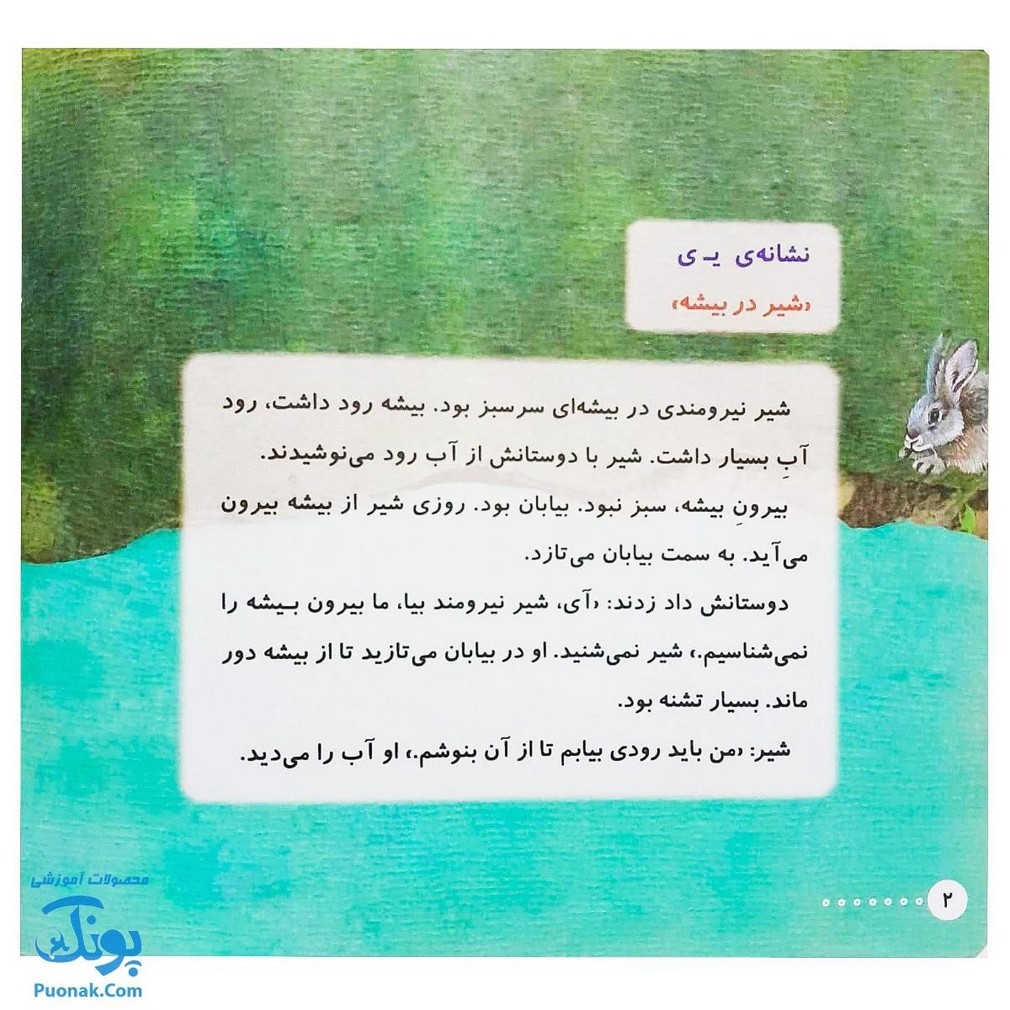 نشانه‌ی یـ ی
‹شیر در بیشه›
شیر نیرومندی در بیشه‌ای سرسبز بود. بیشه رود داشت، رود
آبِ بسیار داشت. شیر با دوستانش از آب رود می‌نوشیدند.
بیرونِ بیشه، سبز نبود. بیابان بود. روزی شیر از بیشه بیرون
می‌آید. به سمت بیابان می‌تازد.
دوستانش داد زدند: ‹آی، شیر نیرومند بیا، ما بیرون بـیشه را
نمی‌شناسیم.› شیر نمی‌شنید. او در بیابان می‌تازید تا از بیشه دور
ماند. بسیار تشنه بود.
شیر: ‹من باید رودی بیابم تا از آن بنوشم.› او آب را می‌دید.
۲
محصولات آموزشی
پونک
Puonak.Com